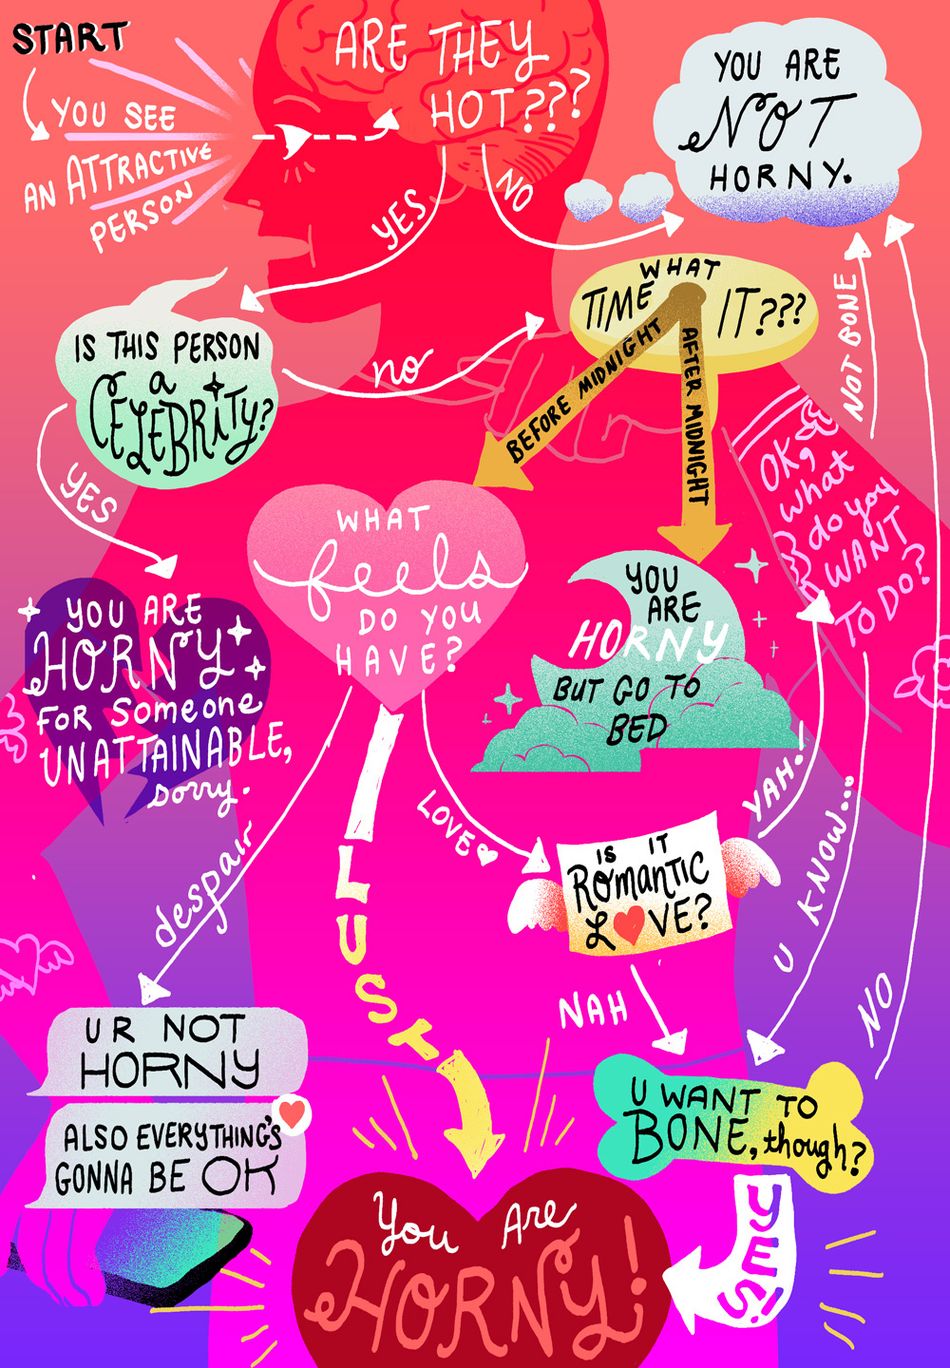 START
YOU SEE
AN ATTRACTIVE
PERSON
ARE THEY
HOT???
YES
NO
YOU ARE
NOT
HORNY.
IS THIS PERSON
a
CELEBRITY?
no
YES
WHAT
TIME IT???
BEFORE MIDNIGHT
AFTER MIDNIGHT
NOT BONE
OK,
what
do you
WANT
TO DO?
YOU ARE
HORNY
FOR Someone
UNATTAINABLE,
sorry.
WHAT
feels
DO YOU
HAVE?
YOU
ARE
HORNY
BUT GO TO
BED
despair
LUST
LOVE
IS IT
RomANTIC
LOVE?
YAH!
U KNOW...
NAH
NO
U R NOT
HORNY
ALSO EVERYTHING'S
GONNA BE OK
U WANT TO
BONE, though?
YES!
You Are
HORNY!